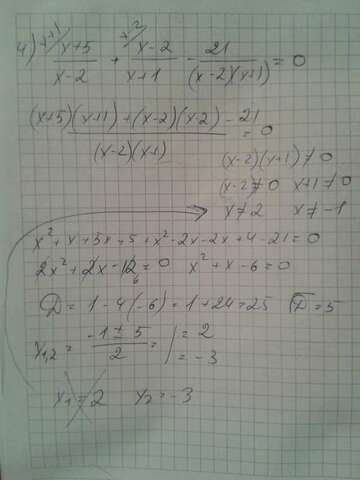 4) x+1/ x+5/x-2 + x-2/ x-2/x+1 - 21/(x-2)(x+1) = 0
(x+5)(x+1)+(x-2)(x-2)-21/(x-2)(x+1) = 0
(x-2)(x+1)≠0
(x-2)≠0 x+1≠0
x≠2 x≠-1
x²+x+5x+5+x²-2x-2x+4-21=0
2x²+2x-12=0 x²+x-6=0
6
D=1-4(-6)=1+24=25 √D=5
x1,2 = -1±5/2 = | = 2
= -3
x1=2 x2=-3